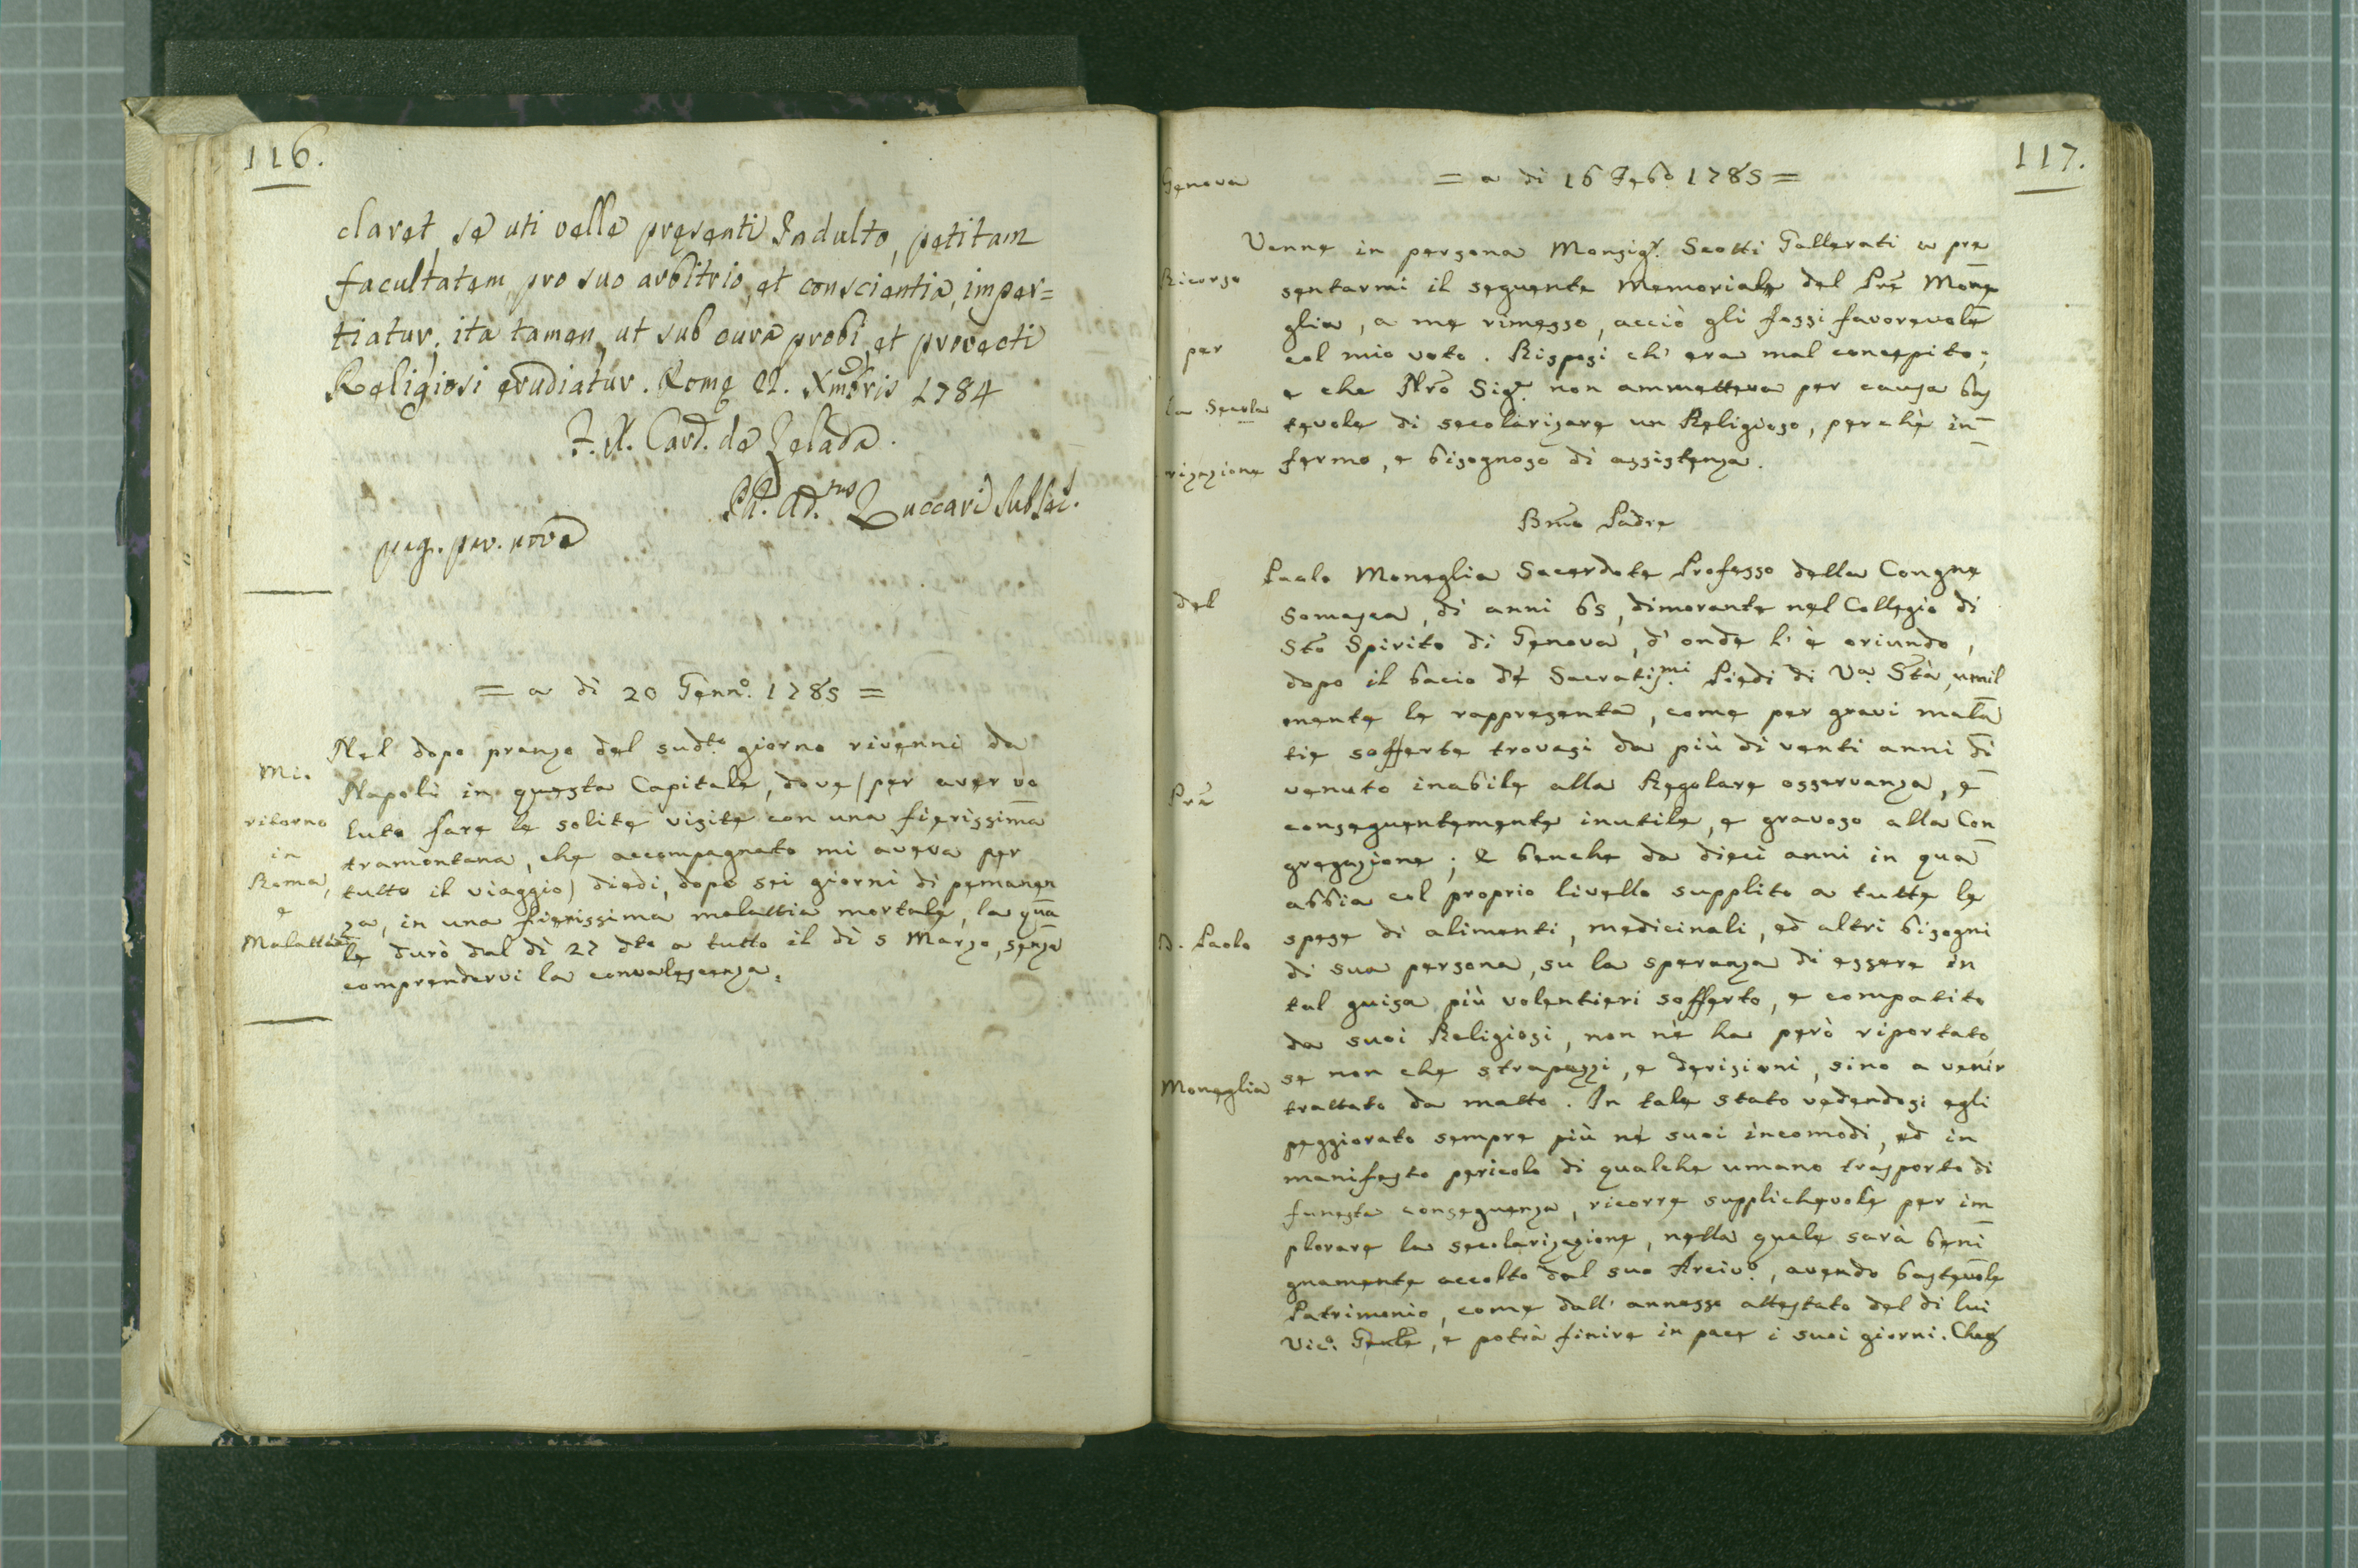 116.
claret, se uti velle presenti Indulto, petitam
facultatem pro suo arbitrio, et conscientia, imper=
tiatur, ita tamen, ut sub cura probi, et provecti
Religiosi erudiatur. Rome 21. Xmbris 1784
F. X. Card. de Zelada.
Ph. Ad.nus Zuccari Subsec.
= a di 20 Genn.o 1785 =
Mio
ritorno
in
Roma,
e
Malattia
Nel dopo pranzo del sud.to giorno rivenni da
Napoli in questa Capitale, dove (per aver vo
luto fare le solite visite con una fierissima
tramontana, che accompagnato mi aveva per
tutto il viaggio) diedi, dopo sei giorni di pemanen
za, in una fierissima malattia mortale, la qua
le durò dal dì 27 dto a tutto il dì 5 Marzo, senza
comprendervi la convalescenza.
117.
Genova
Ricorso
per
la Secola
rizazione
del
Pre
D. Paolo
Moneglia
= a di 16 Feb.o 1785 =
Venne in persona Monsig.r Scotti Gallerati a pre
sentarmi il seguente Memoriale del Pre Mone
glia, a me rimesso, acciò gli fossi favorevole
col mio voto. Risposi ch' era mal concepito;
e che Nro Sig.r non ammetteva per causa bas
tevole di secolarizare un Religioso, perchè in
fermo, e bisognoso di assistenza.
Bmo Padre
Paolo Moneglia Sacerdote Professo della Congne
Somasca, di anni 65, dimorante nel Collegio di
Sto Spirito di Genova, d' onde l' è oriundo,
dopo il bacio de' Sacratis.mi Piedi di V.a Stà, umil
mente le rappresenta, come per gravi mala
tie sofferte trovasi da più di venti anni di
venuto inabile alla Regolare osservanza, e
conseguentemente inutile, e gravoso alla Con
gregazione; e benche da dieci anni in qua
abbia col proprio livello supplito a tutte le
spese di alimenti, medicinali, ed altri bisogni
di sua persona, su la speranza di essere in
tal guisa più volentieri sofferto, e compatito
da suoi Religiosi, non nè ha però riportato,
se non che strapazzi, e derisioni, sino a venir
trattato da matto. In tale stato vedendosi egli
peggiorato sempre più ne' suoi incomodi, ed in
manifesto pericolo di qualche umano trasporto di
funesta conseguenza, ricorre supplichevole per im
plorare la secolarizazione, nella quale sarà beni
gnamente accolto dal suo Arciv.o, avendo bastevole
Patrimonio, come dall' annesso attestato del di lui
Vic.o Gentle, e potrà finire in pace i suoi giorni. Che